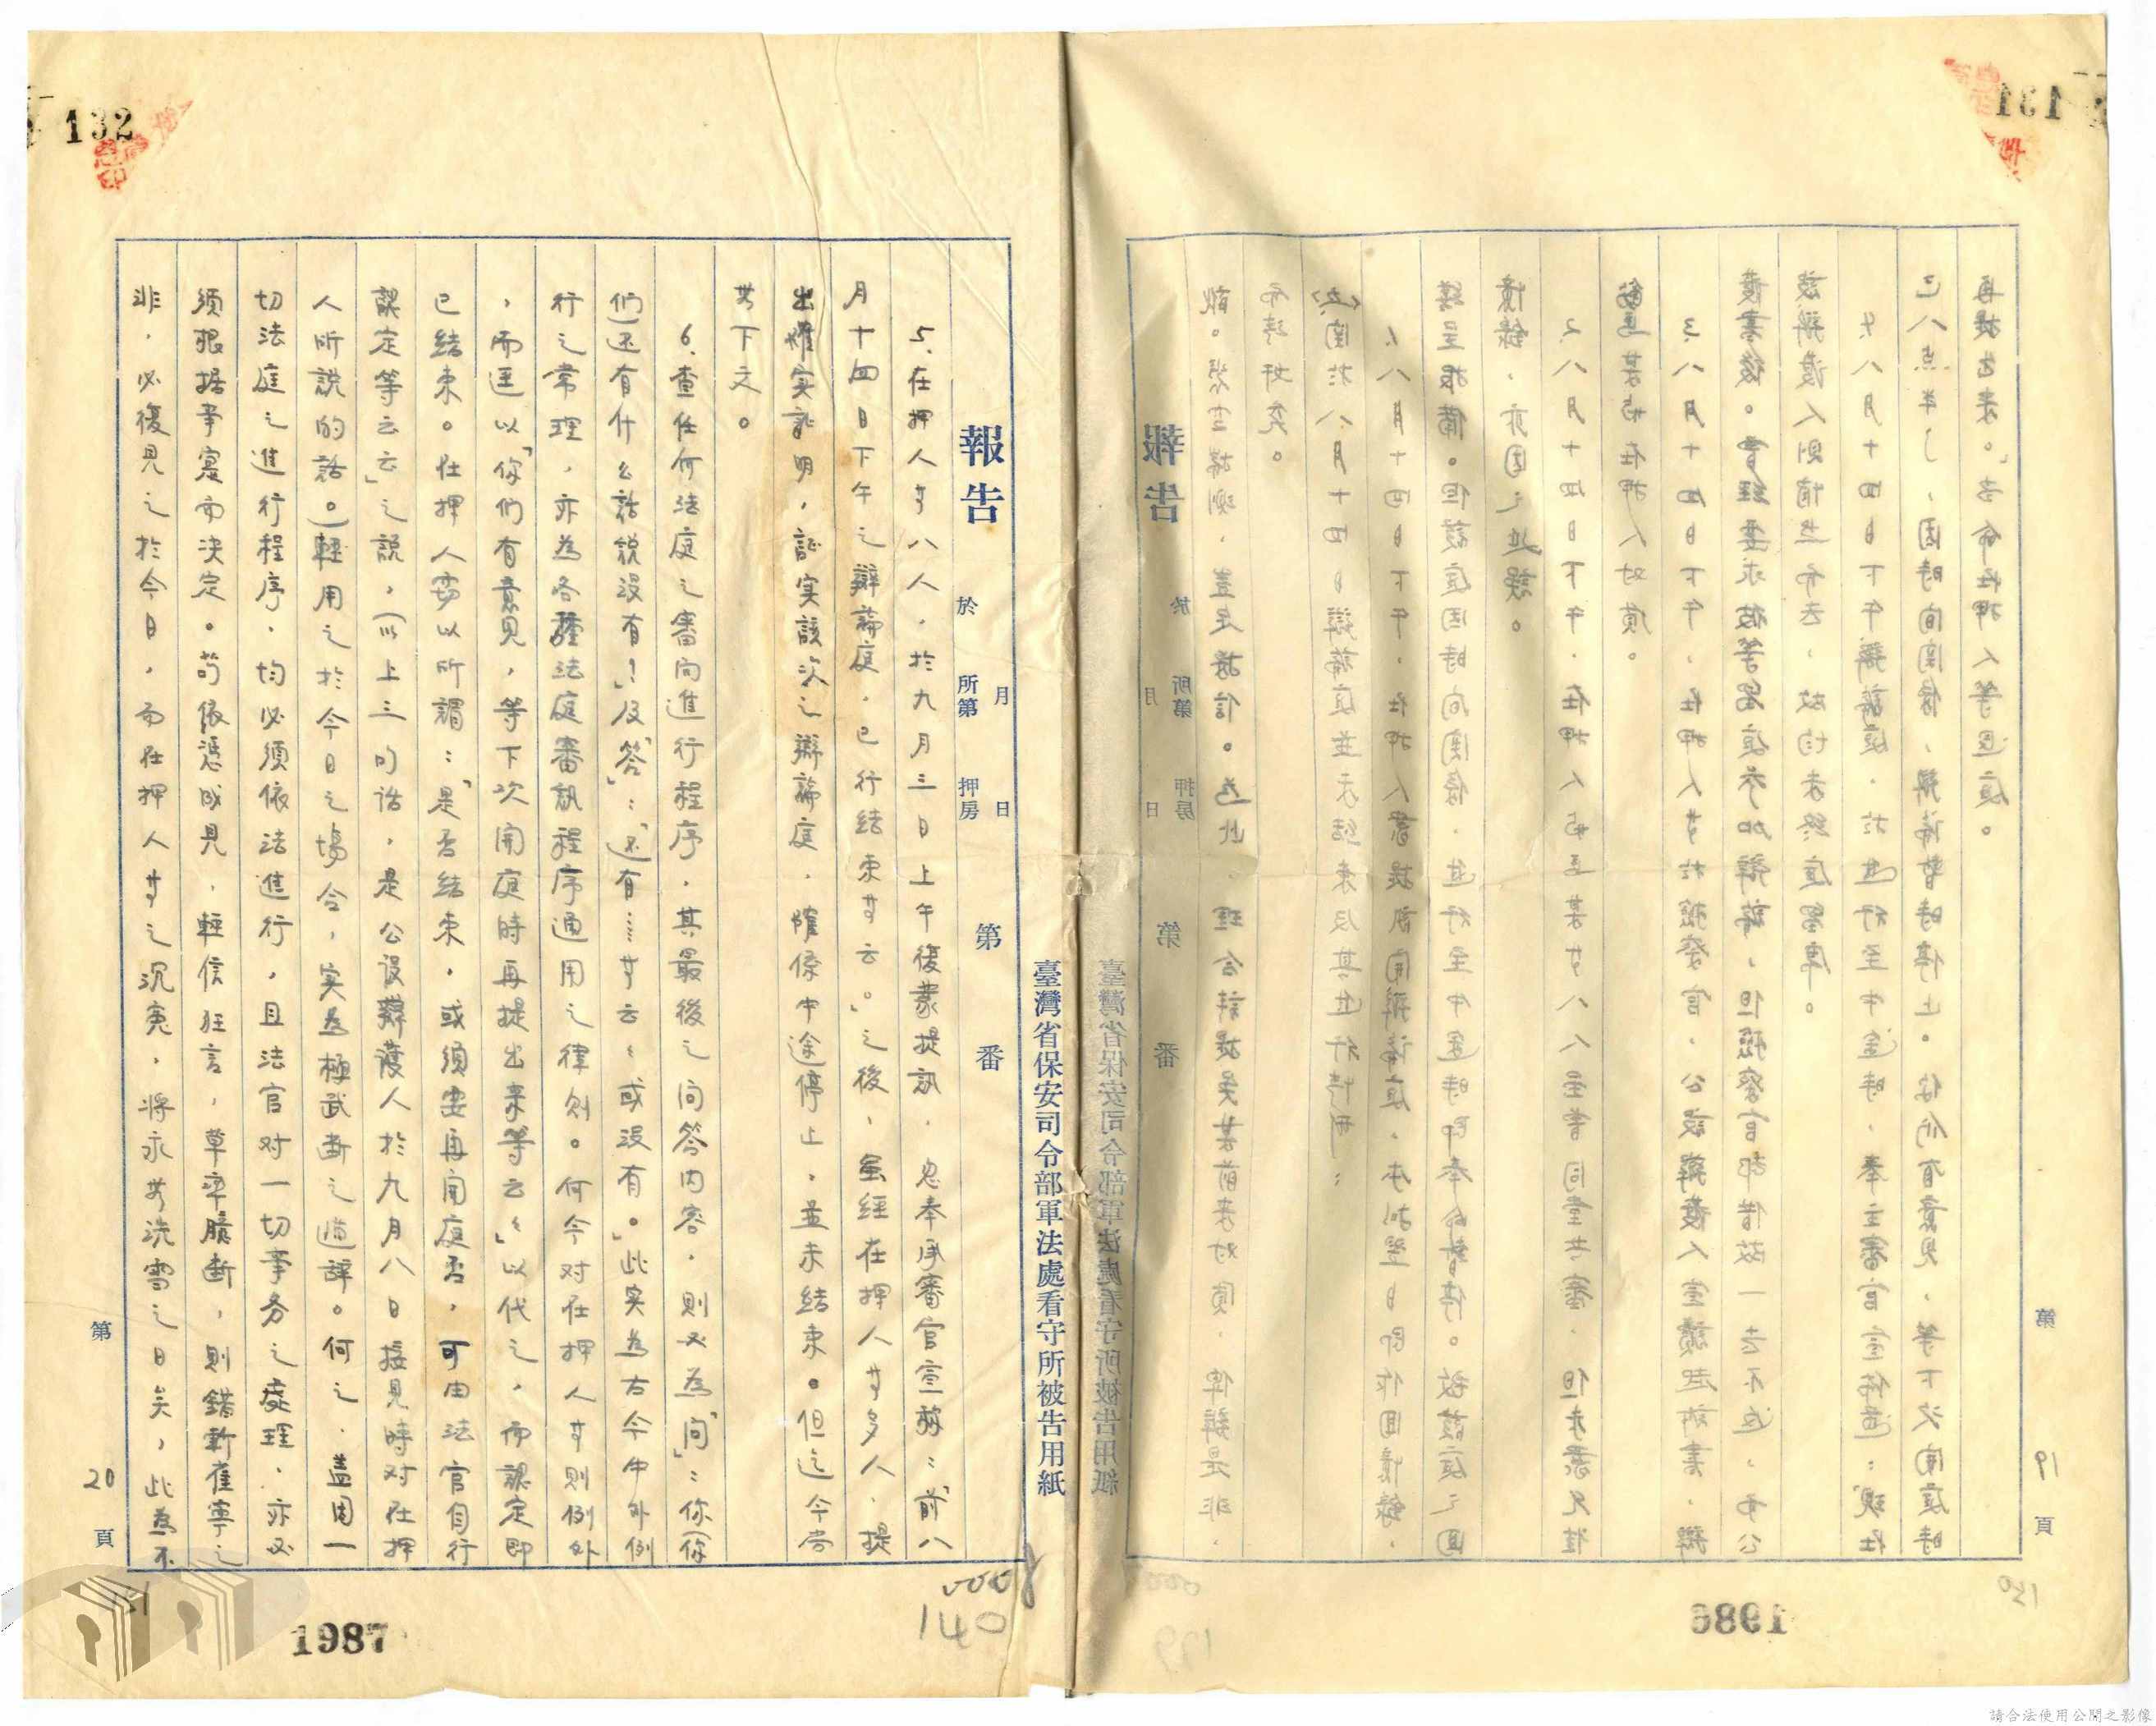 132
臺灣省保安司令部軍法處看守所被告用紙
報告
月 日
於 所第 押房
第 番
5.在押人等八人，於九月三日上午復蒙提訊，忽奉承審官宣稱：「前八
月十四日下午之辯論庭，已行結束等云。」之後，虽經在押人等多人，提
出確实証明，証实該次之辯論庭，確係中途停止，並未結束。但迄今尚
等下文。
6.查任何法庭之審问進行程序，其最後之问答内容，則必為「问」：你（你
們）还有什么話說沒有！」及「答」：「还有……等云々或沒有。」此实為古今中外例
行之常理，亦為各種法庭審訊程序通用之律則。何今对在押人等則例外
，而逕以「你們有意見，等下次開庭時再提出來等云々」以代之，而認定即
已結束。在押人要以所謂：「是否結束，或須要再開庭否，可由法官自行
認定等云云」之說，（以上三句話，是公設辯護人於九月八日接見時对在押
人所說的話。）輕用之於今日之場合，实為極武断之遁辞。何之，盖因一
切法庭之進行程序，均必須依法進行，且法官对一切事务之處理，亦必
須根据事实而决定。苟依憑成見，輕信狂言，草率臆断，則錯斬崔寧之
非，必復見之於今日，而在押人等之沉寃，將永芳洗雪之日矣，此為不
第 20 頁
1987
140
131
臺灣省保安司令部軍法處看守所被告用紙
報告
月 日
於 所第 押房
第 番
揣測，豈足據信。為此，理合詳提吳某前來对質，俾辨是非，
而詳奸究。
(六)関於八月十四日辯論庭並未結束及其進行情形：
1.八月十四日下午，在押人蒙提訊開辯論庭，本拟翌日即作回憶錄，
繕呈报備。但該庭因時间関係，進行至中途時即奉命暫停。故該庭之回
憶錄，亦因之延誤。
2.八月十四日下午，在押人等八人同堂共審，但未蒙允准
在押人对質。
3.八月十四日下午，在押人等於檢察官，公設辯護人宣讀起訴書，辯
護書後。曾經要求彼等留庭參加辯論，但檢察官却借故一去不返，而公
設辯護人則悄然而去，故均未終庭留席。
4.八月十四日下午辯論庭，於進行至中途時，奉主審官宣佈道：「現在
已八点半了，因時间関係，辯論暫時停止。你們有意見，等下次開庭時
再提出來。」言命在押人等退庭。
第 19 頁
1986
139
130
請合法使用公開之影像